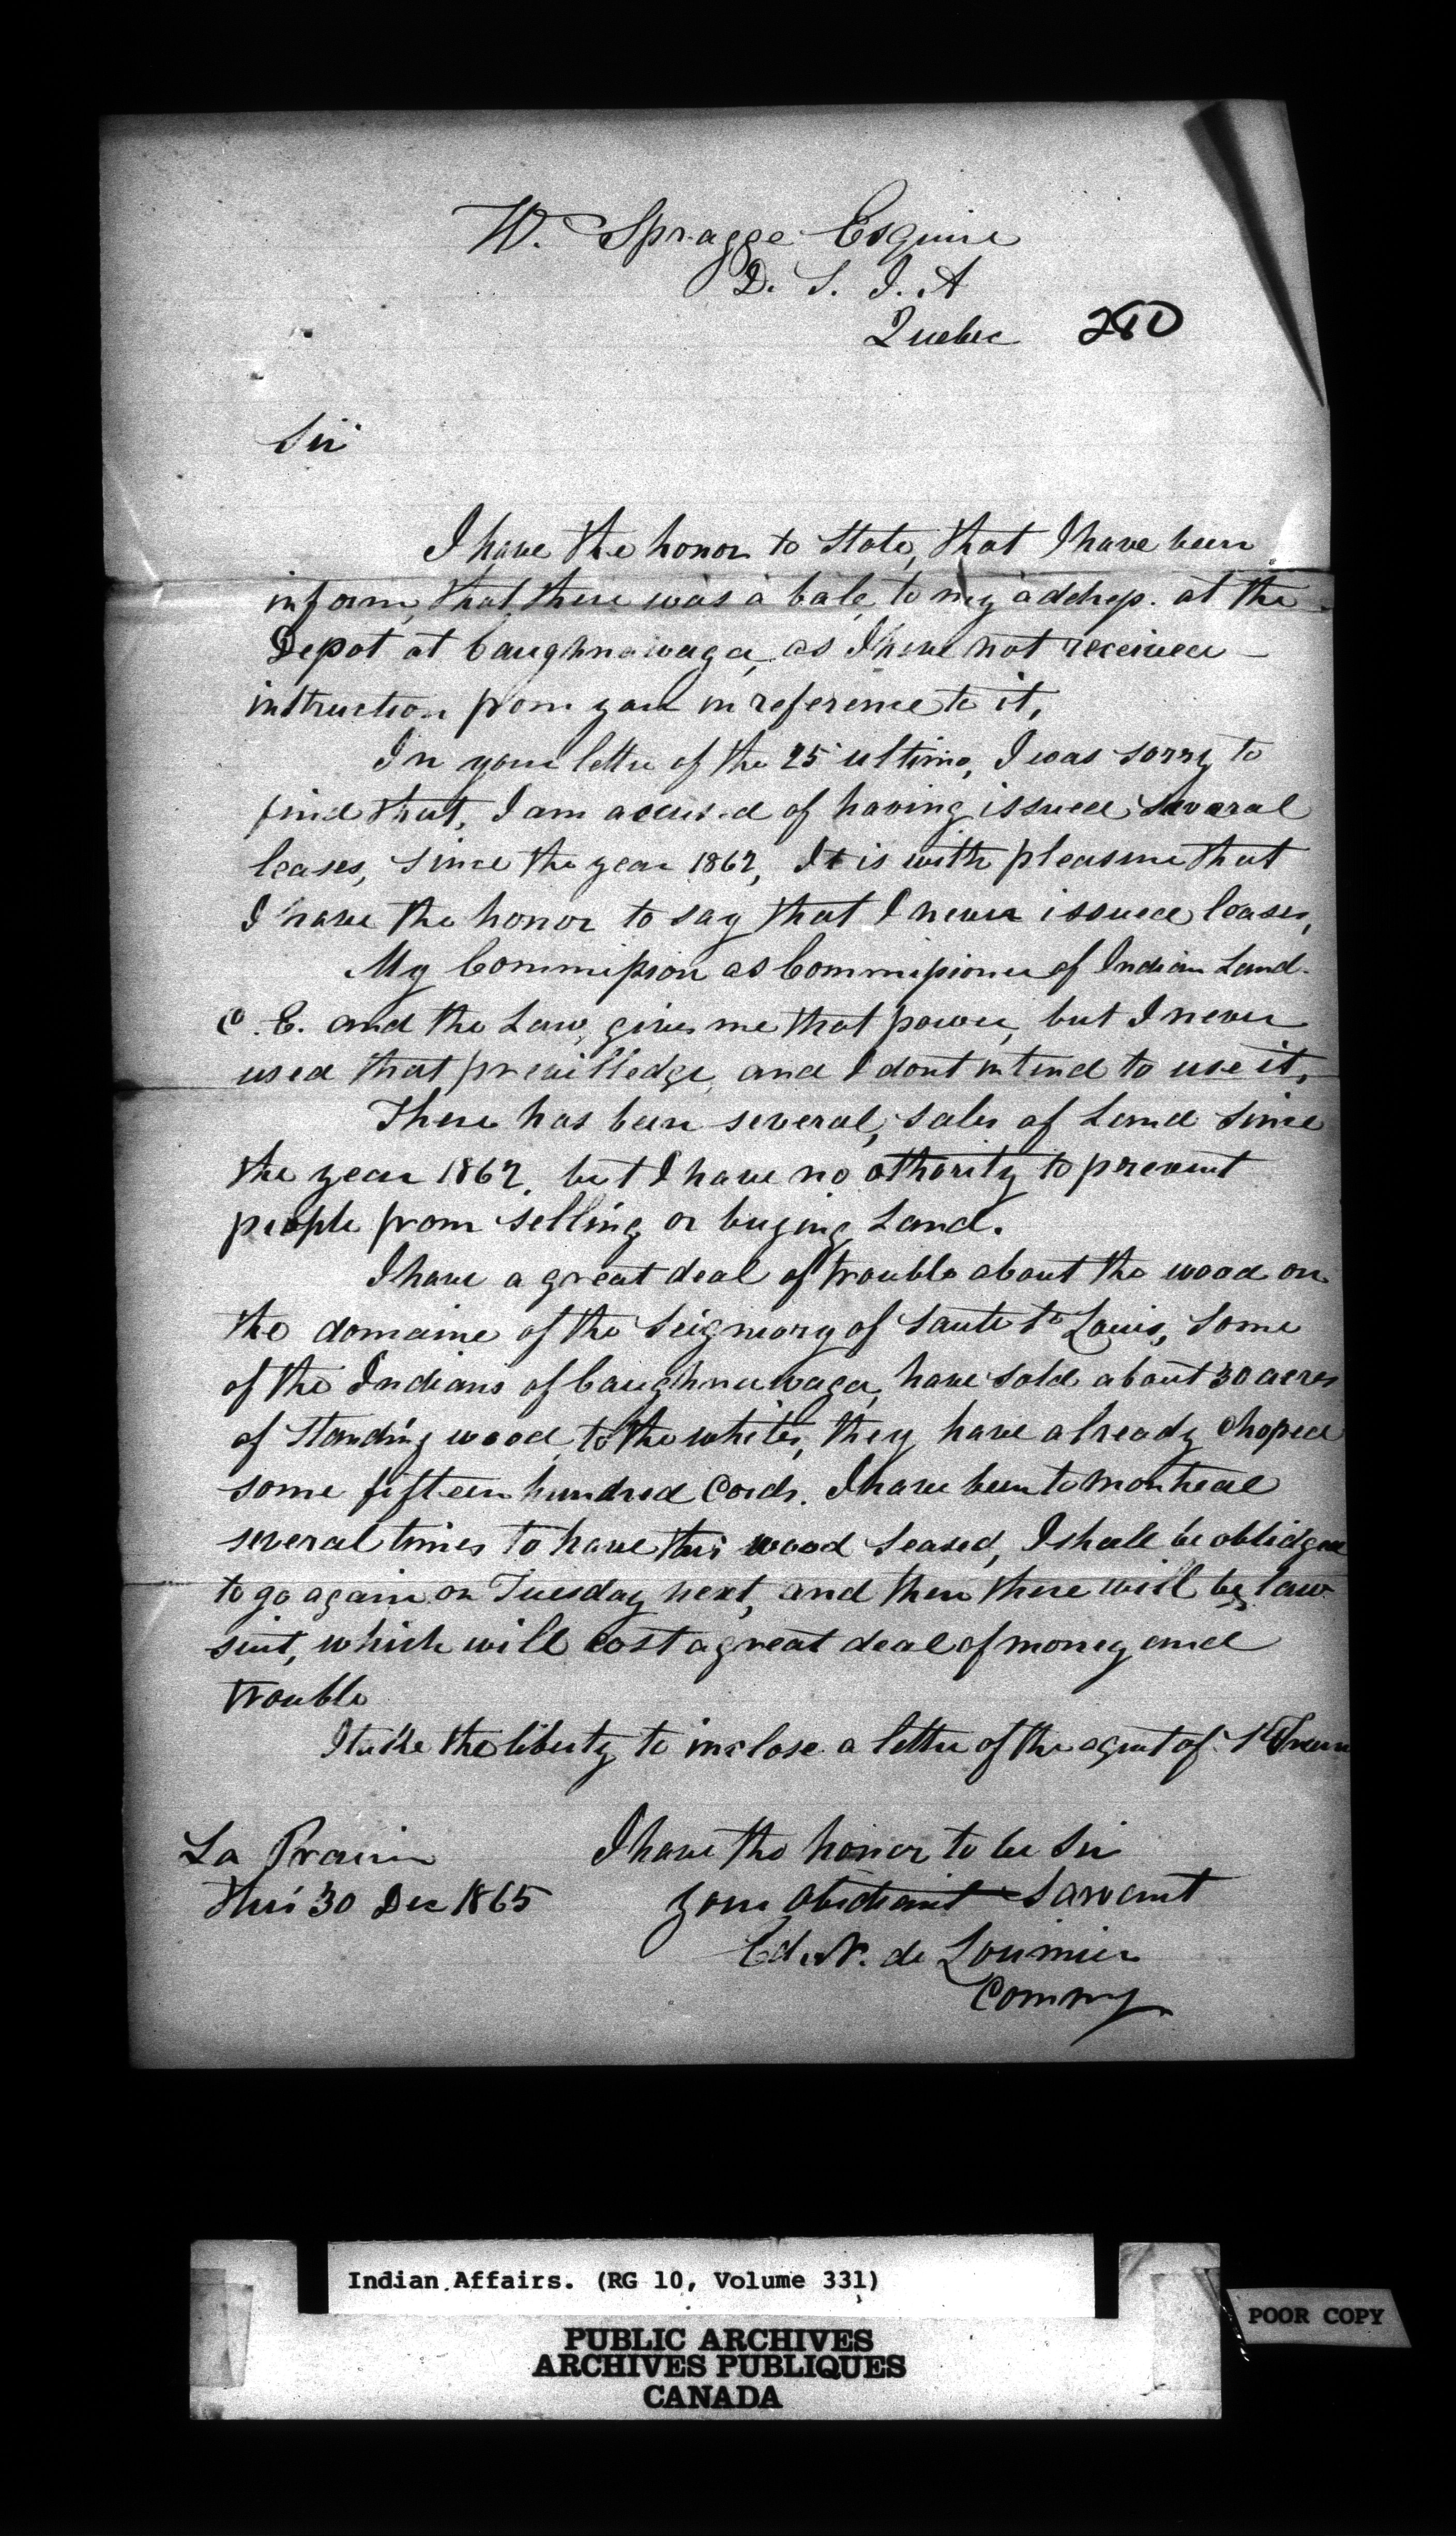 W. Spragge Esquire
D. S. I. A
Quebec 280
Sir
I have the honor to state, that I have been
inform, that there was a bale to my addresss. at the
Depot at Caughnawaga, as I have not received
instruction from you in reference to it,
In your letter of the 25 ultimo, I was sorry to
find that, I am accused of having issued several
leases, since the year 1862, It is with pleasure that
I have the honor to say that I never issued leases,
My Commission as Commissioner of Indian Land
C. E. and the Law, gives me that power, but I never
used that previlledge, and I dont intend to use it,
There has been several, sales of Land since
the year 1862. but I have no othority to prevent
people from selling or buying Land.
I have a great deal of trouble about the wood on
the domaine of the Seigneory of Saute St Louis, some
of the Indians of Caughnawaga, have sold about 30 acres
of standing wood, to the whites, they have already choped
some fifteen hundred Cords. I have been to Montreal
several times to have this wood seased, I shall be oblidged
to go again on Tuesday next, and then there will be law
suit, which will cost a great deal of money and
trouble
I take the liberty to inclose a letter of the agent of St
La Prairie I have the honor to be Sir
this 30 Dec 1865 your obidiant Sarvant
Ed. N. de Lorimier
Commr
Indian Affairs. (RG 10, Volume 331)
POOR COPY
PUBLIC ARCHIVES
ARCHIVES PUBLIQUES
CANADA